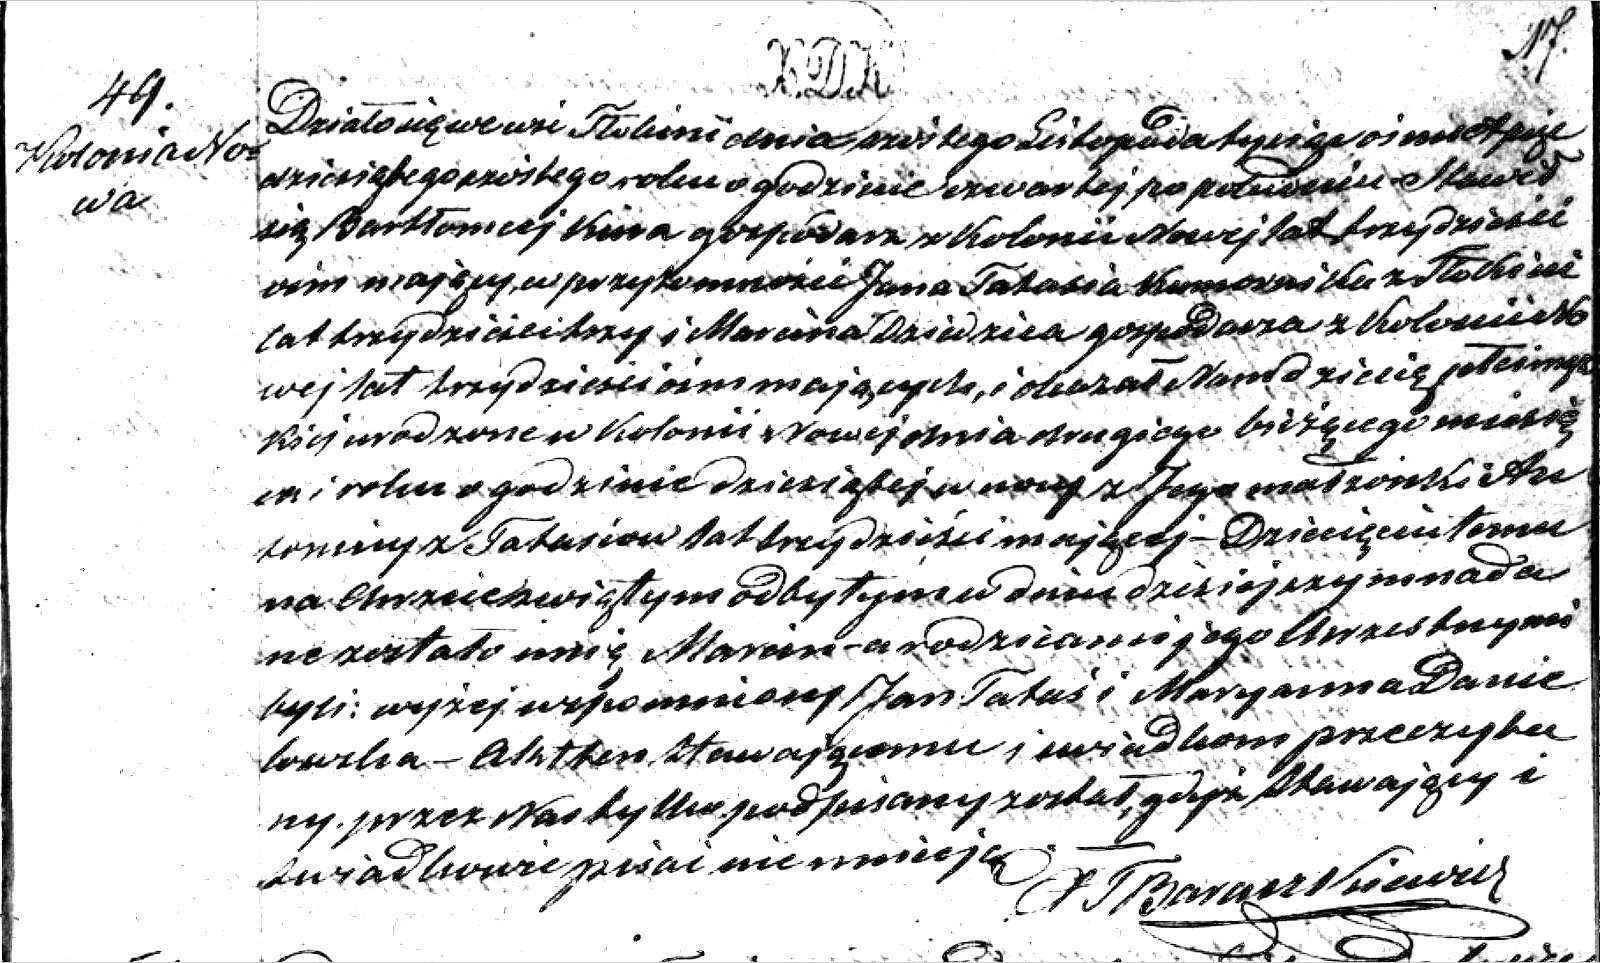 17.
49.
Kolonia No=
wa
Działo się we wsi Tłokini dnia szóstego Listopada tysiąc ośmset pięć
dziesiątego szóstego roku o godzinie czwartej po południu – Stawił
się Bartłomiej Kura gospodarz z Kolonii Nowej lat trzydzieści
ośm mający, w przytomności Jana Tatusia Komornika z Tłokini
lat trzydzieści trzy i Marcina Dziedzica gospodarza z Kolonii No
wej lat trzydzieści ośm mających, i okazał Nam dziecię płci męz
kiej urodzone w Kolonii Nowej dnia drugiego bieżącego miesią
ca i roku o godzinie dziesiątej w nocy z Jego małżonki An
toniny z Tatusiów lat trzydzieści mającej – Dziecięciu temu
na Chrzcie świętym odbytym w dniu dzisiejszym nada
ne zostało imię Marcin – a rodzicami jego Chrzestnymi
byli: wyżej wspomniony Jan Tatuś i Maryanna Danie
lowska – Akt ten stawającemu i świadkom przeczyta
ny. przez Nas tylko podpisany został, gdyż Stawający i
świadkowie pisać nie umieją
X T Baraszkiewicz